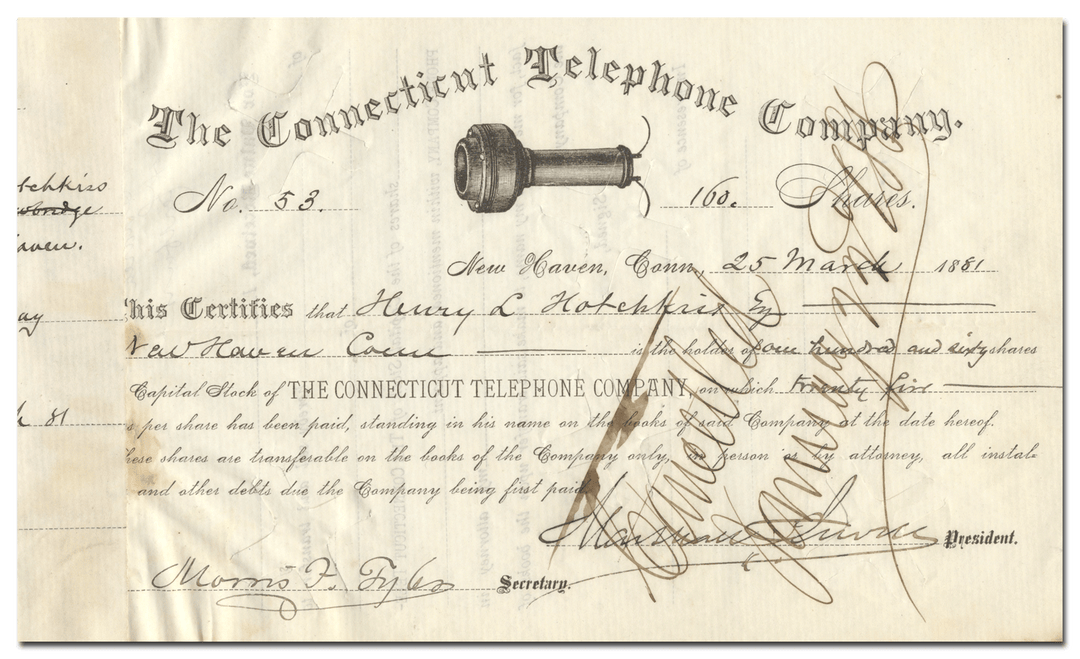 The Connecticut Telephone Company.
No. 53.
160. Shares.
tchkiss
aven.
ay
81
New Haven, Conn, 25 March 1881
his Certifies that Henry L Hotchkiss Esq
New Haven Conn is the holder of one hundred and sixty shares
Capital Stock of THE CONNECTICUT TELEPHONE COMPANY, on which twenty five
s per share has been paid, standing in his name on the books of said Company at the date hereof.
hese shares are transferable on the books of the Company only, in person or by attorney, all instal-
and other debts due the Company being first paid
Marshall Jewell President.
Morris F. Tyler Secretary.
Cancelled